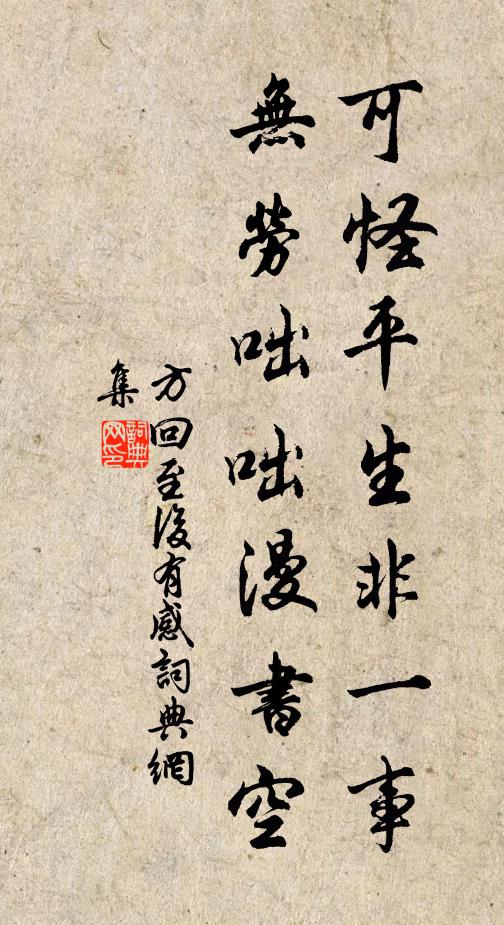 可怪平生非一事
無勞咄咄漫書空
方回至後有感詞典網
集
詞典
网印